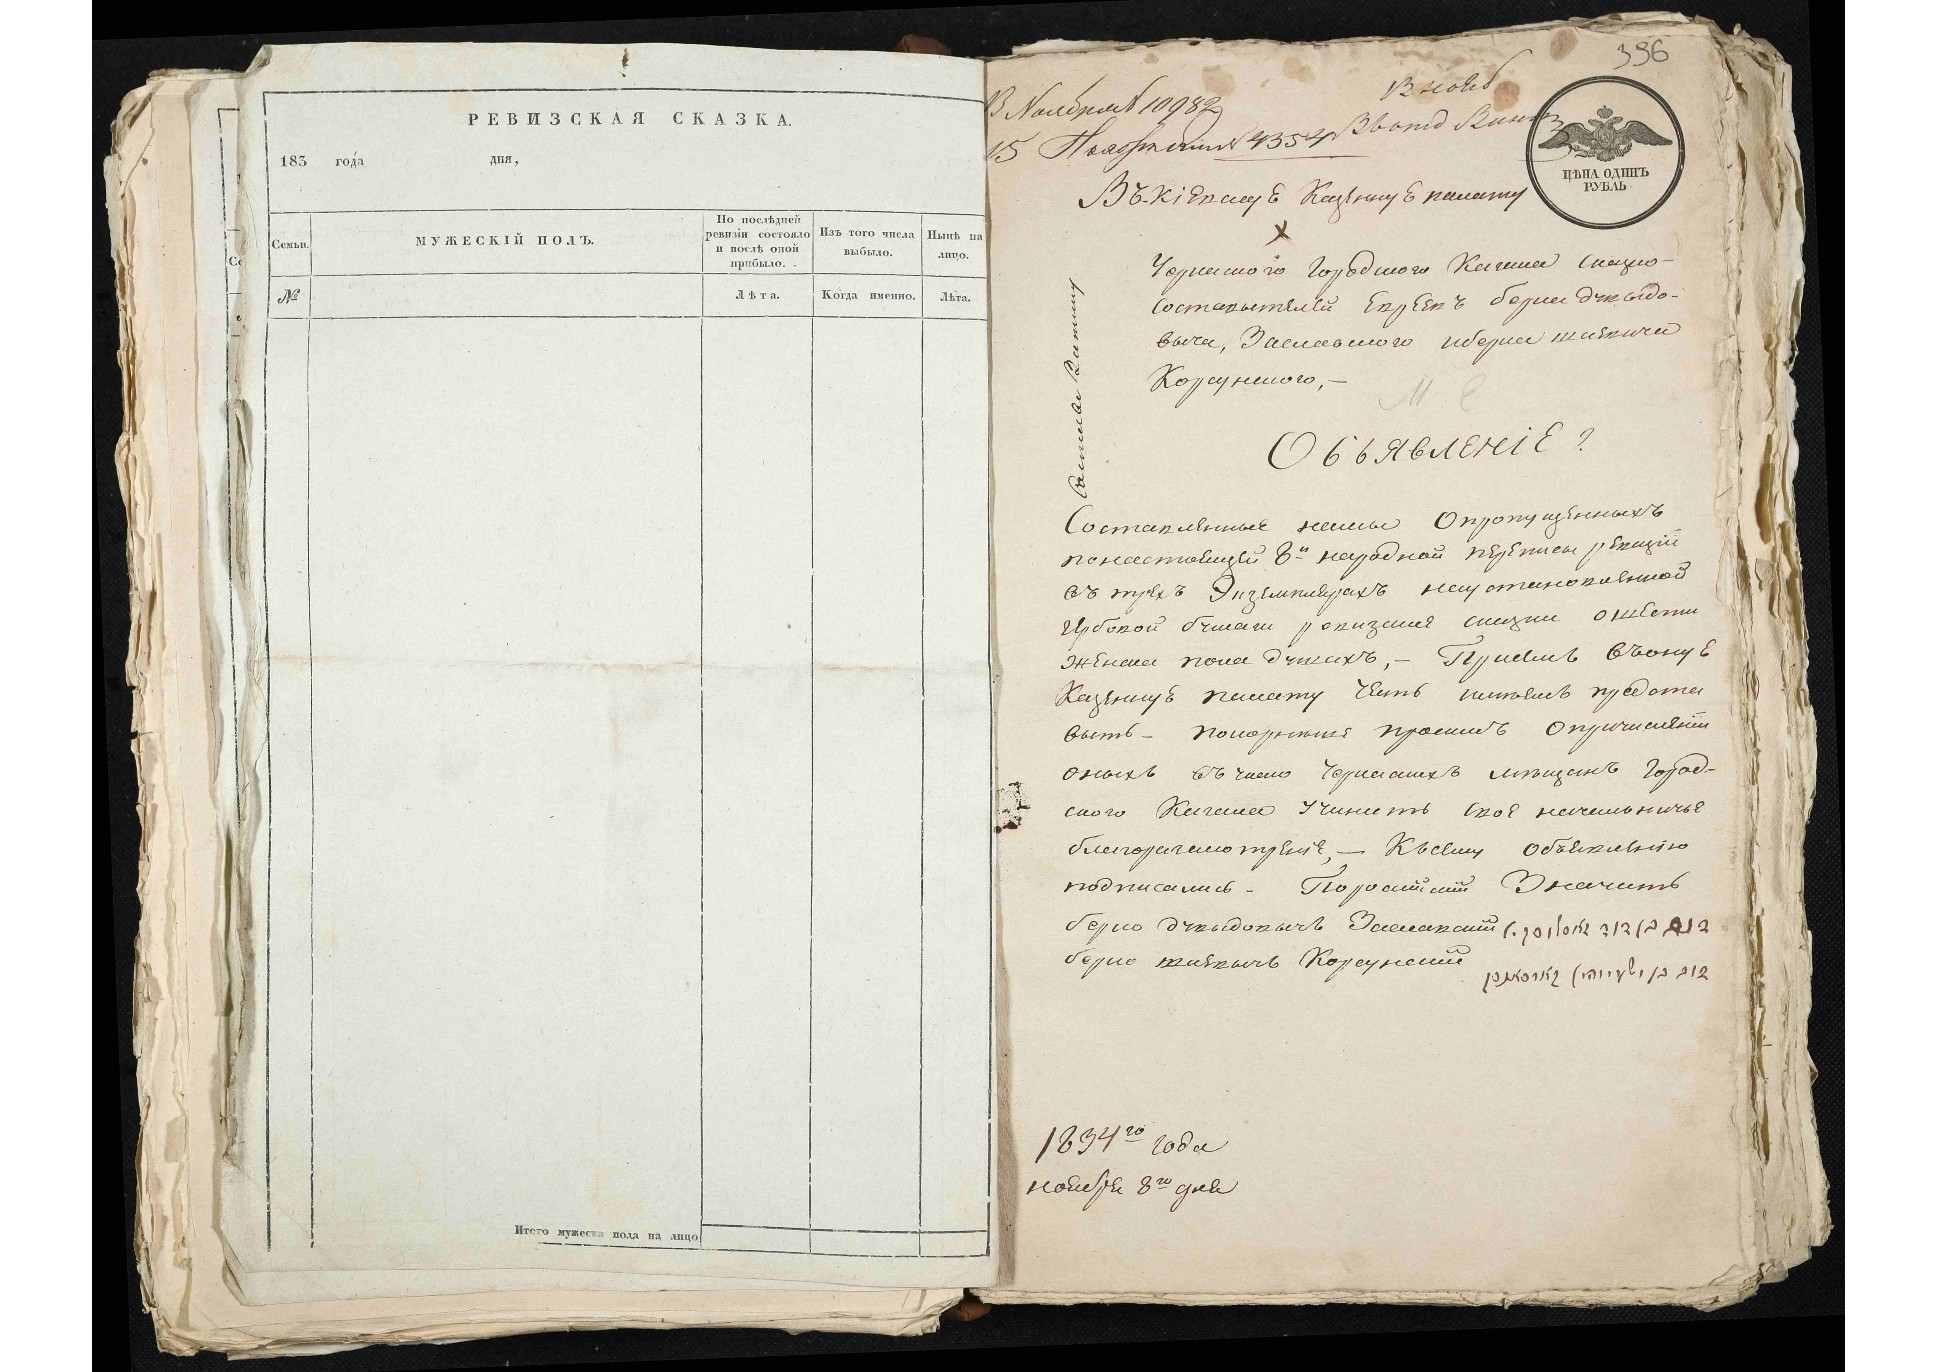 РЕВИЗСКАЯ СКАЗКА.
183 года дня,
Семьи.
МУЖЕСКІЙ ПОЛЪ.
По послѣдней
ревизіи состояло
и послѣ оной
прибыло.
Изъ того числа
выбыло.
Нынѣ на
лицо.
№
Лѣта.
Когда именно.
Лѣта.
Итого мужеска пола на лицо
336
13 Ноября 10982
15 4354
ЦѢНА ОДИНЪ
РУБЛЬ
Въ Кіевскую Казенную палату
Черкаского Городского Кагала сказко-
составителей Евреевъ берка дувыдо-
выча, Заславского иберка
Корсунского,—
Объявленіе
Составленные нами Опропущенныхъ
понастоящей 8й народной переписи ревизіи
въ трехъ Экземплярахъ наустановленной
Гербовой бумаги ревизкие сказки
женска пола душахъ,— При семъ въонуе
Казенную палату Честь имѣемъ предста
выть — покорнеише просимъ Опричисленіи
оныхъ въ число Черкаскихъ мѣщанъ Город-
ского Кагала Учинить свое начальничье
благоразсмотреніе,— Ксему объявленію
подписались — Поросийский Значить
берко дувыдовычъ Заславский
берко Корсунский
1834го года
ноября 8го дня